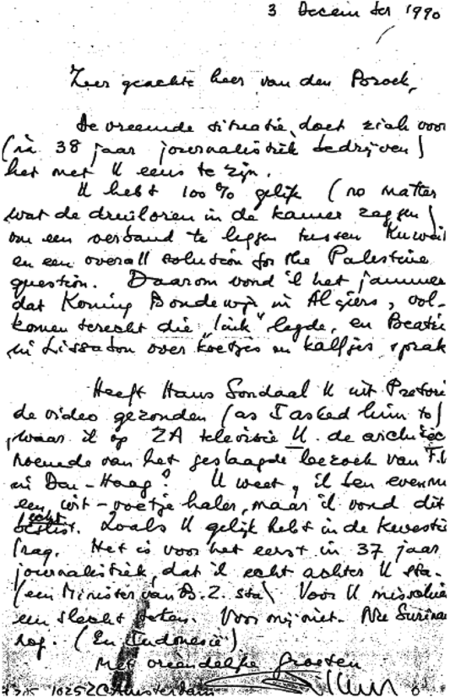 3 December 1990
Zeer geachte heer van den Broek,
De vreemde situatie doet zich voor
(in 38 jaar journalistiek bedrijven)
het met U eens te zijn.
U hebt 100% gelijk (no matter
wat de druiloren in de kamer zeggen)
om een verband te leggen tussen Kuweit
en een overall solution for the Palestine
question. Daarom vond ik het jammer
dat Koning Boudewijn in Algiers, vol-
komen terecht die "link" legde, en Beatrix
in Lissabon over koetjes en kalfjes sprak
Heeft Hans Sondaal U uit Pretori
de video gezonden (as I asked him to)
waar ik op ZA televisie U de architec
noemde van het geslaagde bezoek van F.W
in Den-Haag? U weet, ik ben evenmi
een wit-voetje haler, maar ik vond dit
echt. Zoals U gelijk hebt in de kwestie
Iraq. Het is voor het eerst in 37 jaar
journalistiek, dat ik echt achter U sta.
(een Minister van B.Z. sta) Voor U misschie
een slecht teken. Voor mij niet. Nu Suriname
nog. (En Indonesië)
Met vriendelijke groeten
1025 ZC Amsterdam